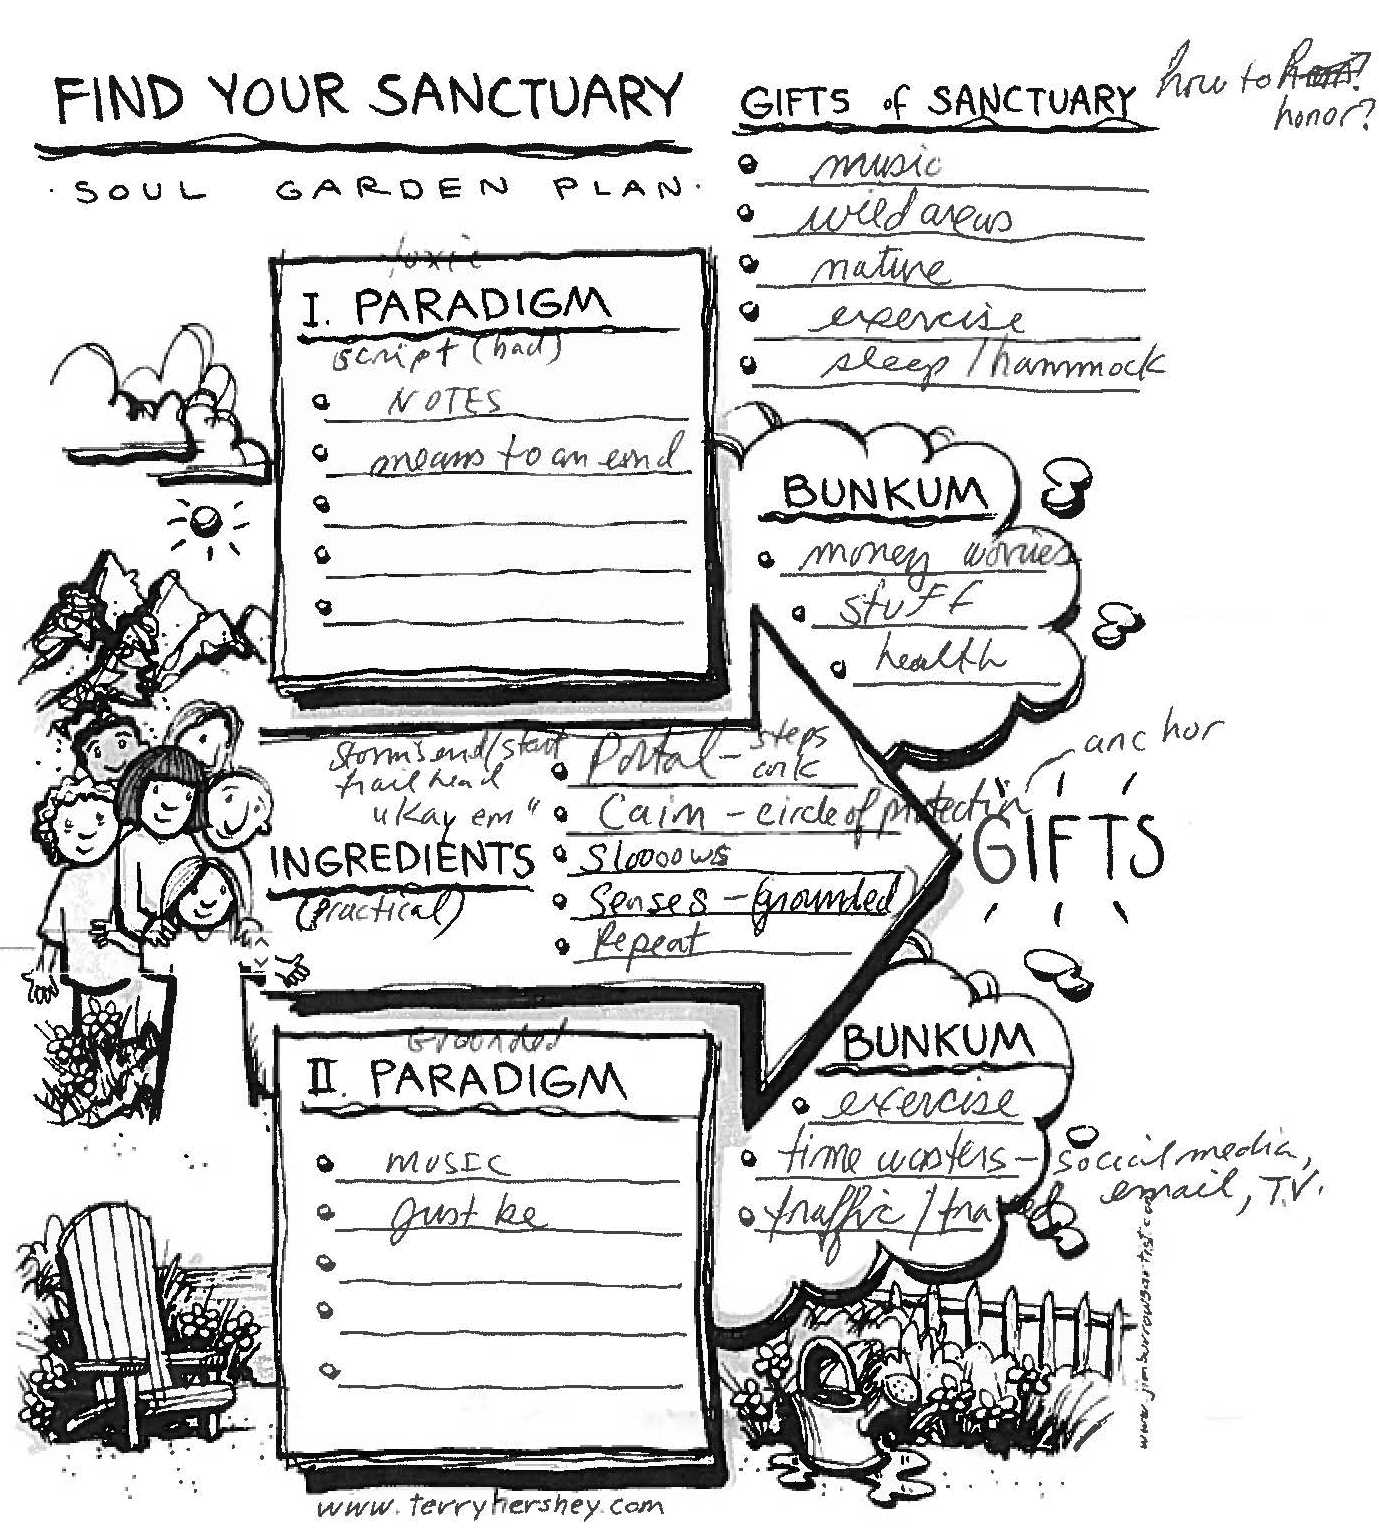 FIND YOUR SANCTUARY
· SOUL GARDEN PLAN ·
GIFTS of SANCTUARY how to
honor?
music
wild areas
nature
exercise
sleep / hammock
toxic
I. PARADIGM
script (bad)
NOTES
means to an end
BUNKUM
money worries
stuff
health
Storm's end/start
trail head
ukay em"
INGREDIENTS
(practical)
Portal - steps
Caim - circle of protection
Sloooows
Senses - (grounded)
Repeat
anchor
GIFTS
Grounded
II PARADIGM
MUSIC
Just be
BUNKUM
exercise
time wasters - social media,
email, T.V.
traffic / travel
www.jimburrowsartist.com
www.terryhershey.com